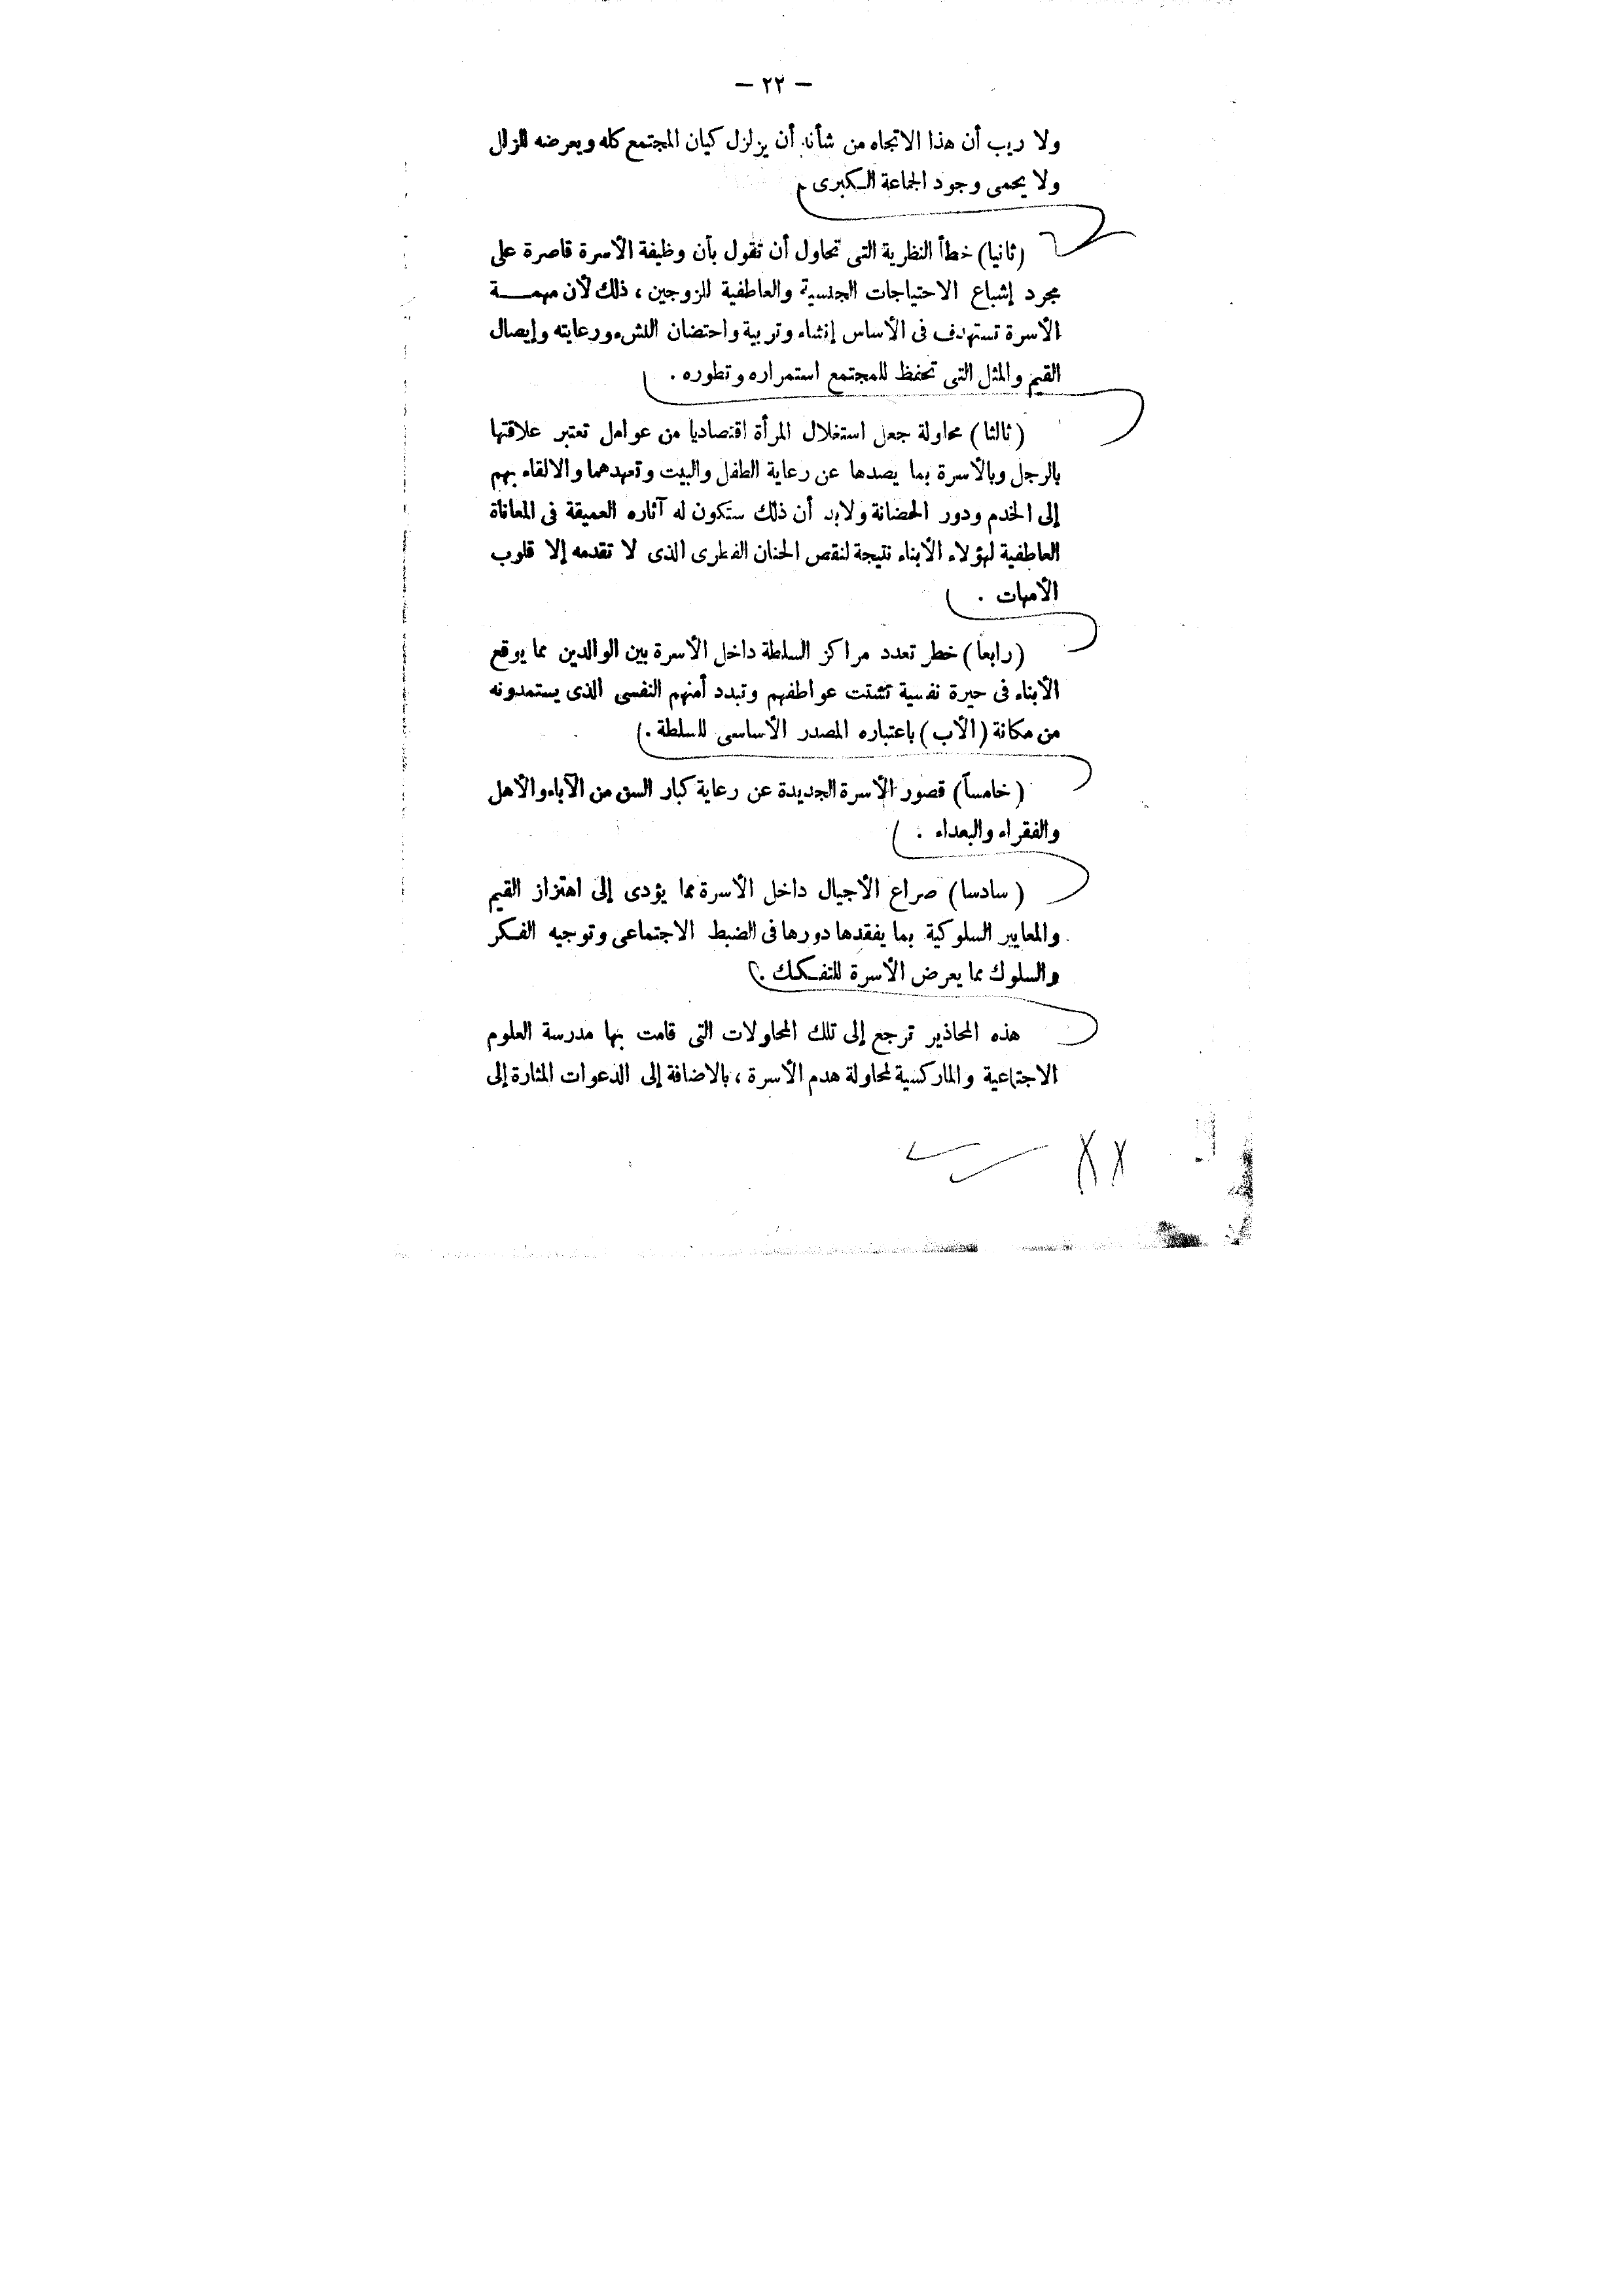 — ٢٢ —
ولا ريب أن هذا الاتجاه من شأنه أن يزلزل كيان المجتمع كله ويعرضه للزلل
ولا يحمى وجود الجماعة الكبرى .
(ثانيا) خطأ النظرية التى تحاول أن تقول بأن وظيفة الأسرة قاصرة على
مجرد إشباع الاحتياجات الجنسية والعاطفية للزوجين ، ذلك لأن مهمة
الأسرة تستهدف فى الأساس إنشاء وتربية واحتضان النشء ورعايته وإيصال
القيم والمثل التى تحفظ للمجتمع استمراره وتطوره .
(ثالثا) محاولة جعل استغلال المرأة اقتصاديا من عوامل تعتبر علاقتها
بالرجل وبالأسرة بما يصدها عن رعاية الطفل والبيت وتعهدهما والالقاء بهم
إلى الخدم ودور الحضانة ولابد أن ذلك ستكون له آثاره العميقة فى المعاناة
العاطفية لهؤلاء الأبناء نتيجة لنقص الحنان الفطرى الذى لا تقدمه إلا قلوب
الأمهات .
(رابعا) خطر تعدد مراكز السلطة داخل الأسرة بين الوالدين مما يوقع
الأبناء فى حيرة نفسية تشتت عواطفهم وتبدد أمنهم النفسى الذى يستمدونه
من مكانة (الأب) باعتباره المصدر الأساسى للسلطة .
(خامساً) قصور الأسرة الجديدة عن رعاية كبار السن من الآباء والأهل
والفقراء والبعداء .
(سادسا) صراع الأجيال داخل الأسرة مما يؤدى إلى اهتزاز القيم
والمعايير السلوكية بما يفقدها دورها فى الضبط الاجتماعى وتوجيه الفكر
والسلوك مما يعرض الأسرة للتفكك .
هذه المحاذير ترجع إلى تلك المحاولات التى قامت بها مدرسة العلوم
الاجتماعية والماركسية لمحاولة هدم الأسرة ، بالاضافة إلى الدعوات المثارة إلى